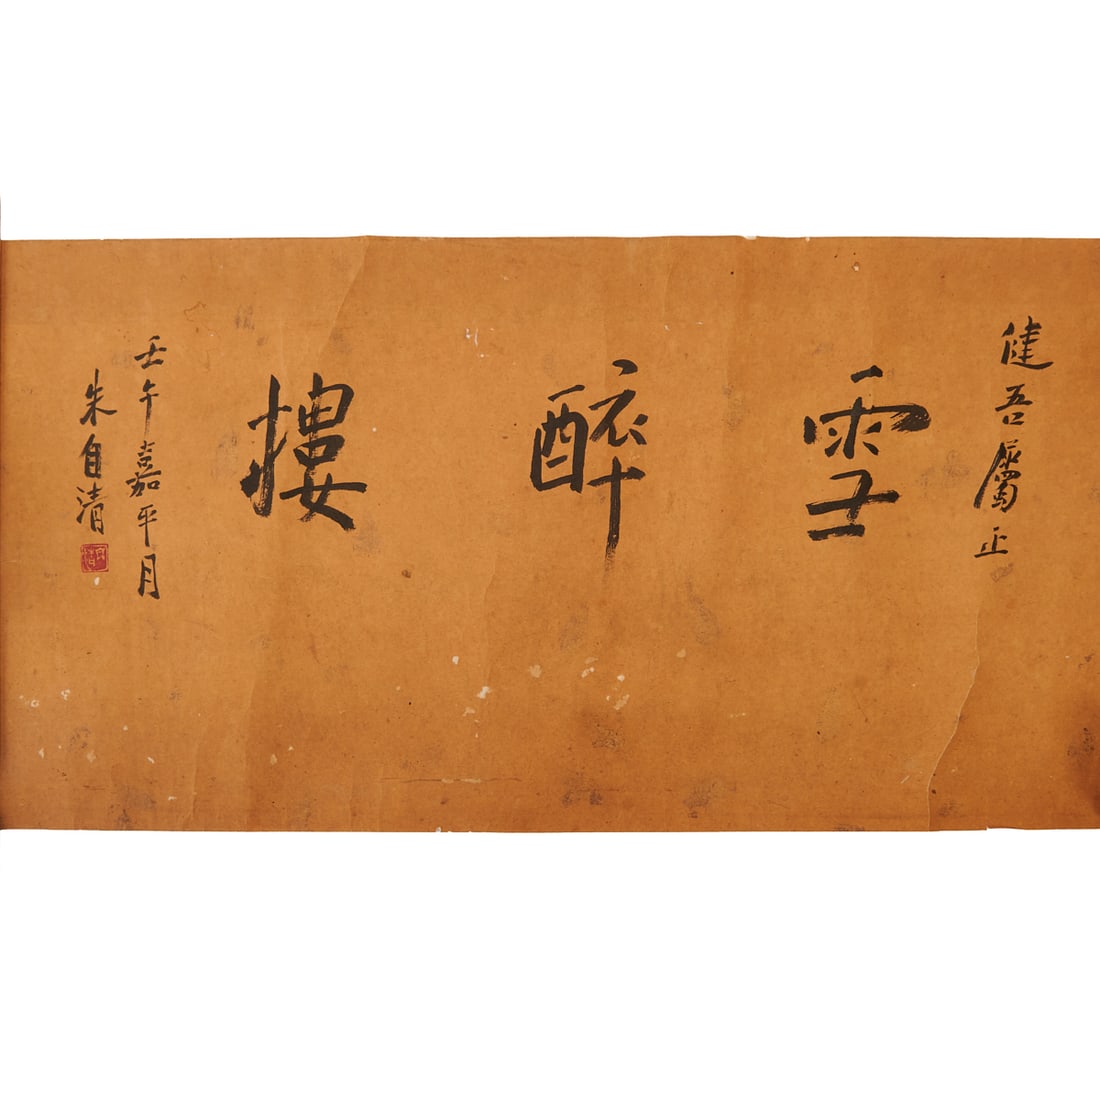 健吾屬正
雪醉樓
壬午嘉平月
朱自清
自清